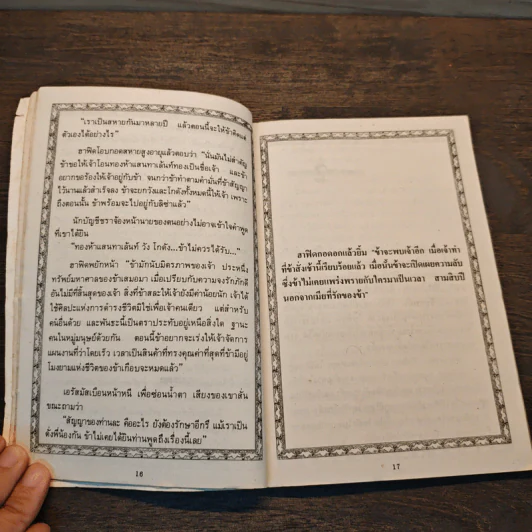 "เราเป็นสหายกันมาหลายปี แล้วตอนนี้จะให้ข้าคิดแต่
ตัวเองได้อย่างไร"
ฮาฟิดโอบกอดสหายสูงอายุแล้วตอบว่า "นั่นมันไม่สำคัญ
ข้าขอให้เจ้าโอนทองห้าแสนทาเล้นท์ทองเป็นชื่อเจ้า และข้า
อยากขอร้องให้เจ้าอยู่กับข้า จนกว่าข้าทำตามคำมั่นที่ข้าสัญญา
ไว้นานแล้วสำเร็จลง ข้าจะยกวังและโกดังทั้งหมดนี้ให้เจ้า เพราะ
ถึงตอนนั้น ข้าพร้อมจะไปอยู่กับลิซ่าแล้ว"
นักบัญชีชราจ้องหน้านายของตนอย่างไม่อาจเข้าใจคำพูด
ที่เขาได้ยิน
"ทองห้าแสนทาเล้นท์ วัง โกดัง...ข้าไม่ควรได้รับ..."
ฮาฟิดพยักหน้า "ข้ามักนับมิตรภาพของเจ้า ประหนึ่ง
ทรัพย์มหาศาลของข้าเสมอมา เมื่อเปรียบกับความจงรักภักดี
อันไม่มีที่สิ้นสุดของเจ้า สิ่งที่ข้าสละให้เจ้ายังมีค่าน้อยนัก เจ้าได้
ใช้ศิลปแห่งการดำรงชีวิตมิใช่เพื่อเจ้าคนเดียว แต่สำหรับ
คนอื่นด้วย และพันธะนี้เป็นตราประทับอยู่เหนือสิ่งใด ฐานะ
คนในหมู่มนุษย์ด้วยกัน ตอนนี้ข้าอยากจะเร่งให้เจ้าจัดการ
แผนงานที่ว่าโดยเร็ว เวลาเป็นสินค้าที่ทรงคุณค่าที่สุดที่ข้ามีอยู่
โมงยามแห่งชีวิตของข้าเกือบจะหมดแล้ว"
เอรัสมัสเบือนหน้าหนี เพื่อซ่อนน้ำตา เสียงของเขาสั่น
ขณะถามว่า
"สัญญาของท่านละ คืออะไร ยังต้องรักษาอีกรึ แม้เราเป็น
ดั่งพี่น้องกัน ข้าไม่เคยได้ยินท่านพูดถึงเรื่องนี้เลย"
16
ฮาฟิดกอดอกแล้วยิ้ม "ข้าจะพบเจ้าอีก เมื่อเจ้าทำ
ที่ข้าสั่งเช้านี้เรียบร้อยแล้ว เมื่อนั้นข้าจะเปิดเผยความลับ
ซึ่งข้าไม่เคยแพร่งพรายกับใครมาเป็นเวลา สามสิบปี
นอกจากเมียที่รักของข้า"
17